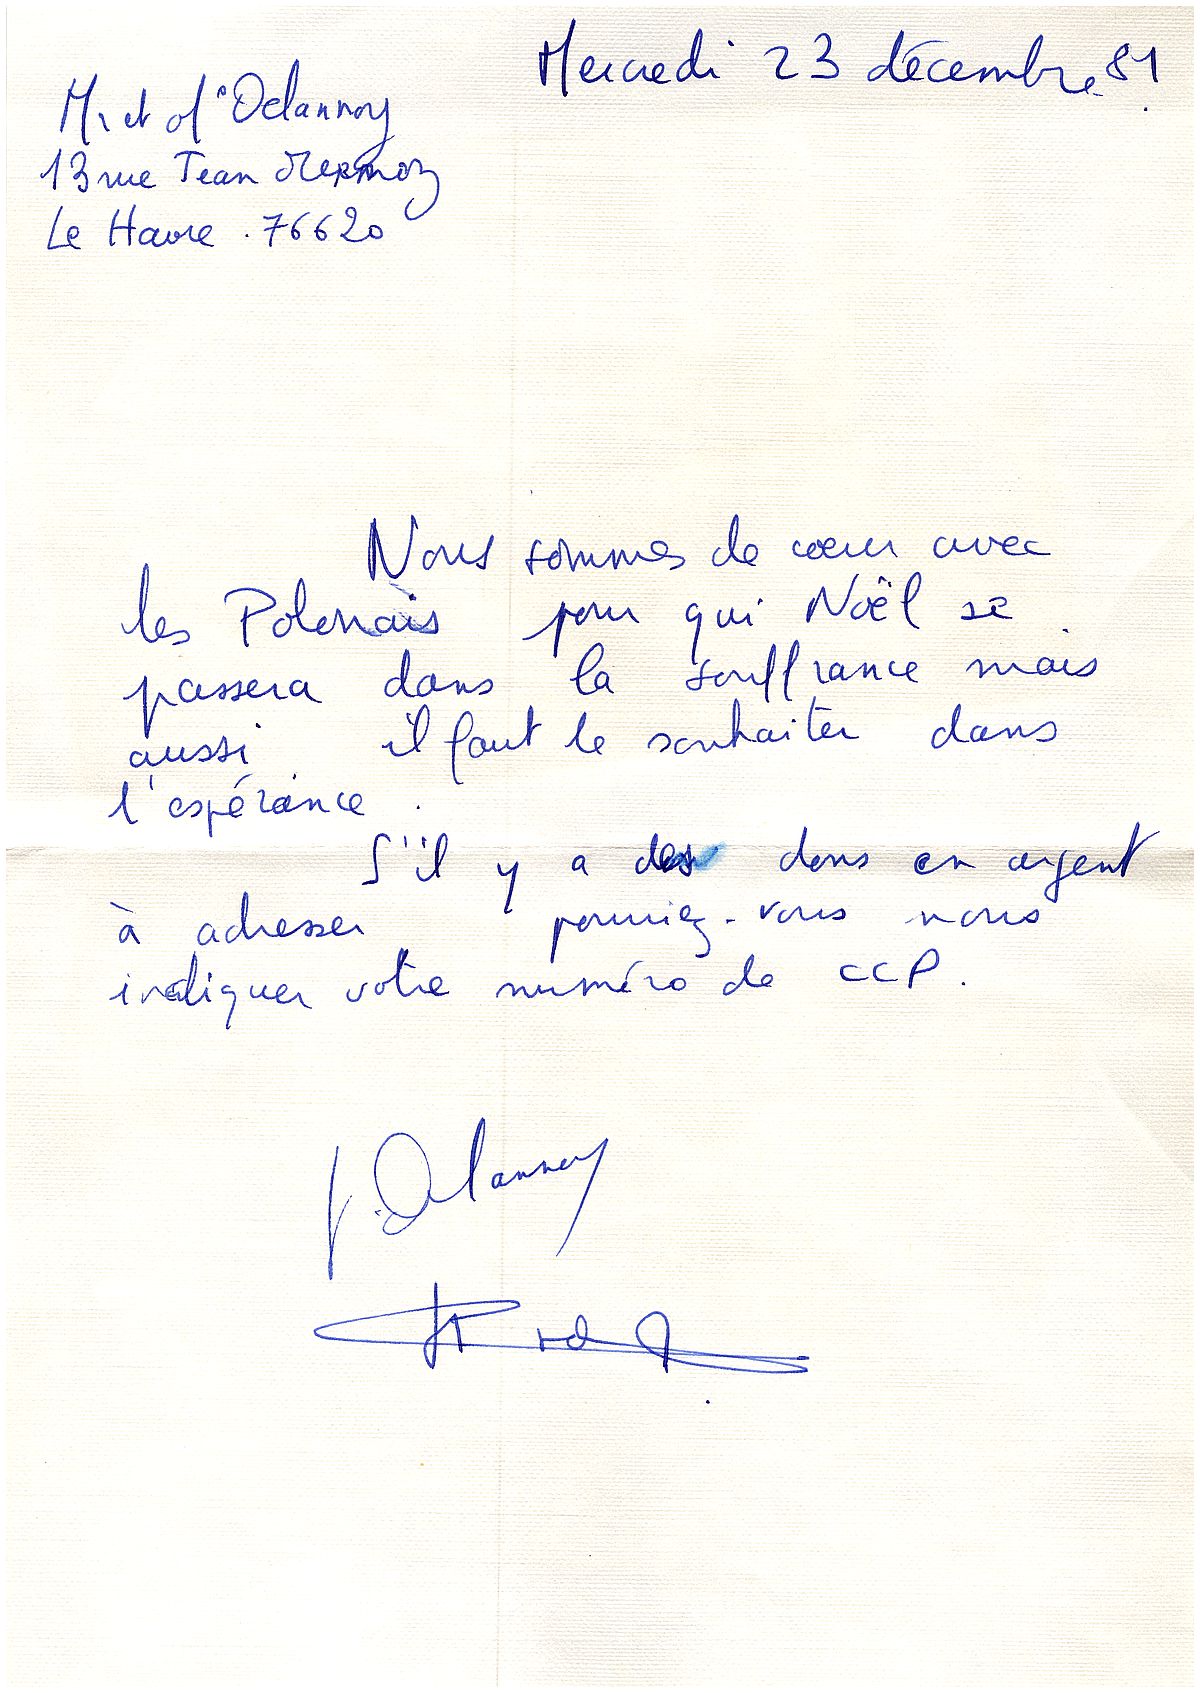 Mercredi 23 décembre 81.
Mr et Me Delannoy
13 rue Jean Mermoz
Le Havre. 76620
Nous sommes de coeur avec
les Polonais pour qui Noël se
passera dans la souffrance mais
aussi il faut le souhaiter dans
l'espérance.
S'il y a des dons en argent
à adresser pourriez-vous nous
indiquer votre numéro de CCP.
Delannoy